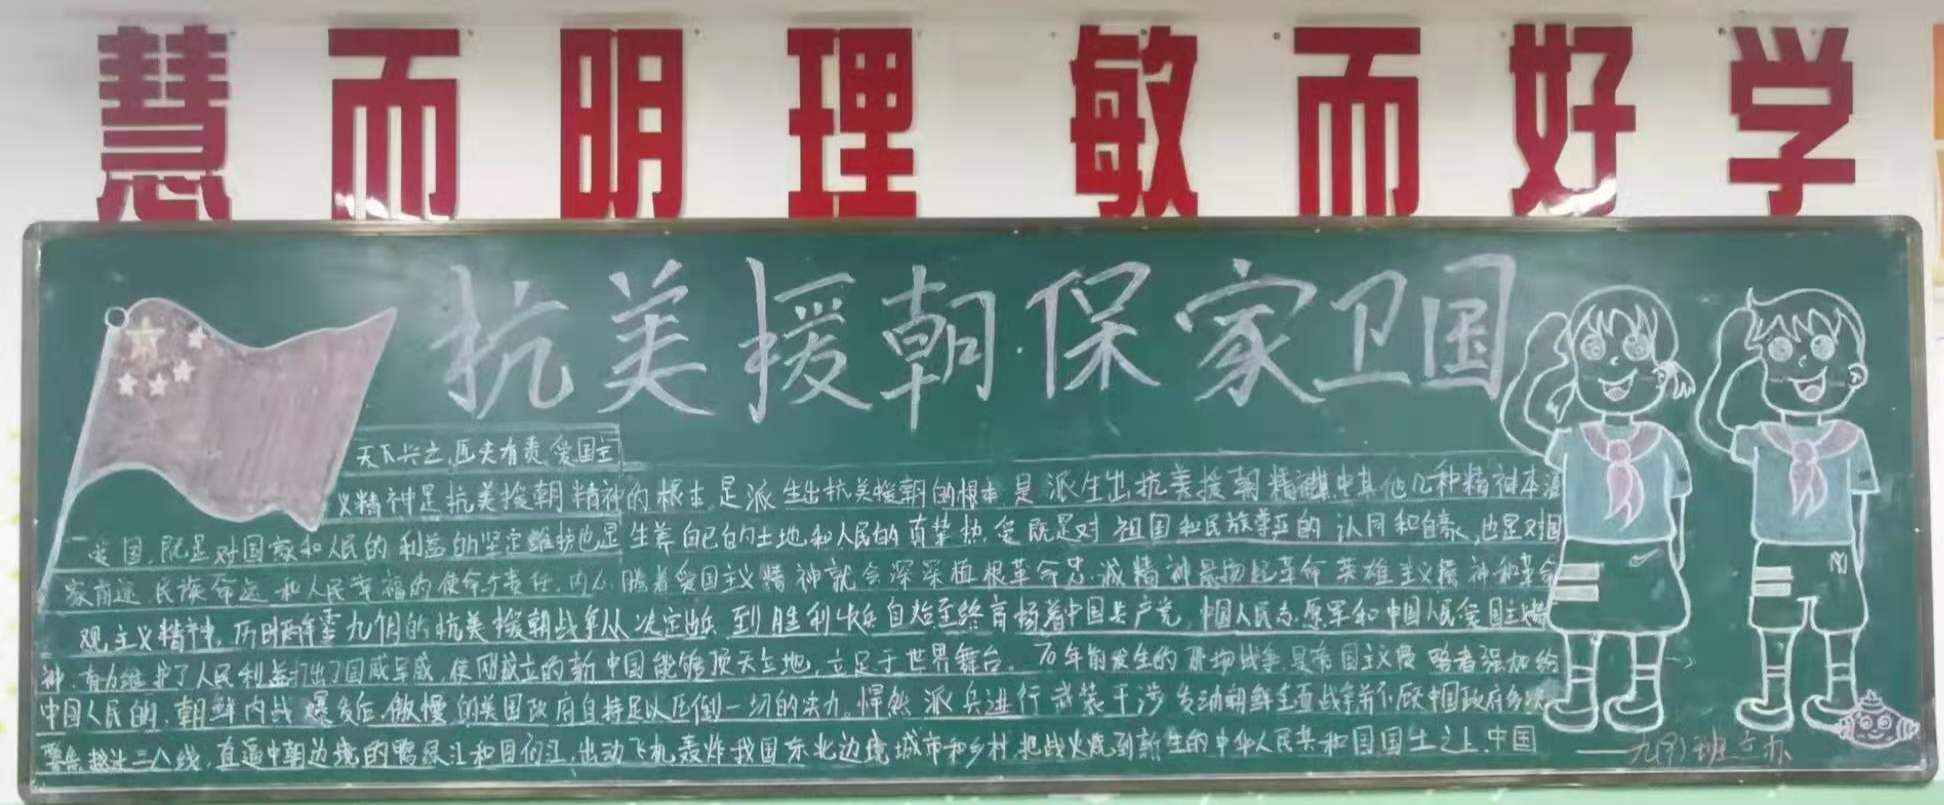 慧而明理 敏而好学
抗美援朝·保家卫国
天下兴之,匹夫有责,爱国主
义精神是抗美援朝精神的根本,是派生出抗美援朝的根本 是派生出抗美援朝精神中其他几种精神本源
爱国,既是对国家和人民的利益的坚定维护也是生养自己的土地和人民的真挚热爱既是对祖国和民族尊严的认同和自豪,也是对国
家前途 民族命运 和人民幸福的使命与责任,内心 腾着爱国主义精神就会深深植根革命忠诚精神最勃起革命英雄主义精神和革命
观主义精神,历时两年零九个月的抗美援朝战争从决定出兵 到胜利 自始至终高扬着中国共产党,中国人民志愿军和中国人民爱国主义精
神,有力维护了人民利益打出了国威军威,使刚成立的新中国能够顶天立地,立足于世界舞台。70年前发生的那场战争是帝国主义侵略者强加给
中国人民的,朝鲜内战爆发后,傲慢的美国政府自持足以压倒一切的实力,悍然派兵进行武装干涉 发动朝鲜全面战争并不顾中国政府多次
警告 越过三八线,直逼中朝边境的鸭绿江和图们江,出动飞机轰炸我国东北边境城市和乡村,把战火烧到新生的中华人民共和国国土之上,中国
——九 班主办